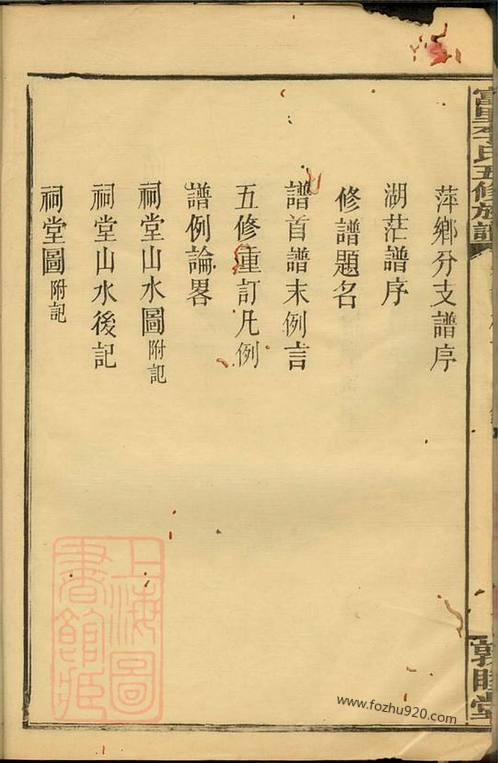 富里李氏五修族譜
萍鄉分支譜序
湖茫譜序
修譜題名
譜首譜末例言
五修重訂凡例
譜例論畧
祠堂山水圖附記
祠堂山水後記
祠堂圖附記
敦睦堂
上海圖書館藏
www.fozhu920.com